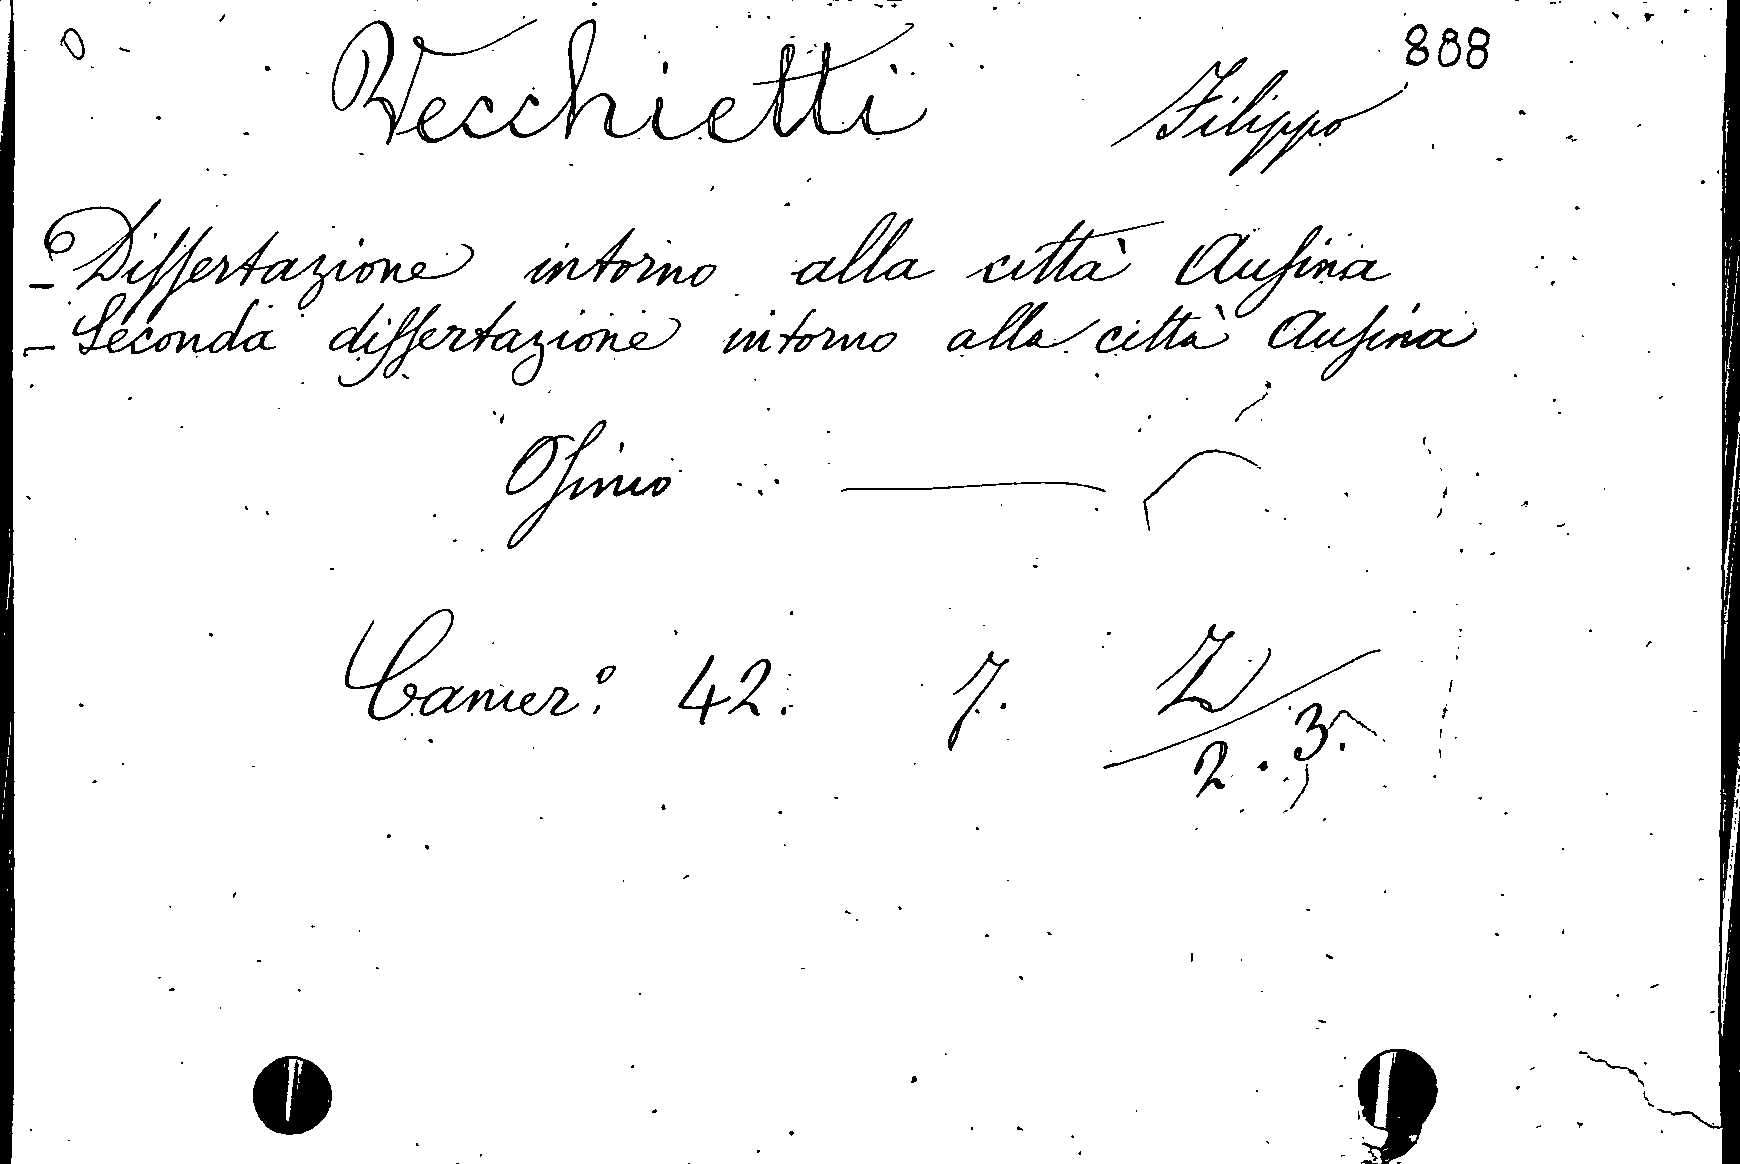 888
Vecchietti Filippo
- Dissertazione intorno alla città Ausina
- Seconda dissertazione intorno alla città Ausina
Osimo
Camer.º 42. 7. Z
2. 3.